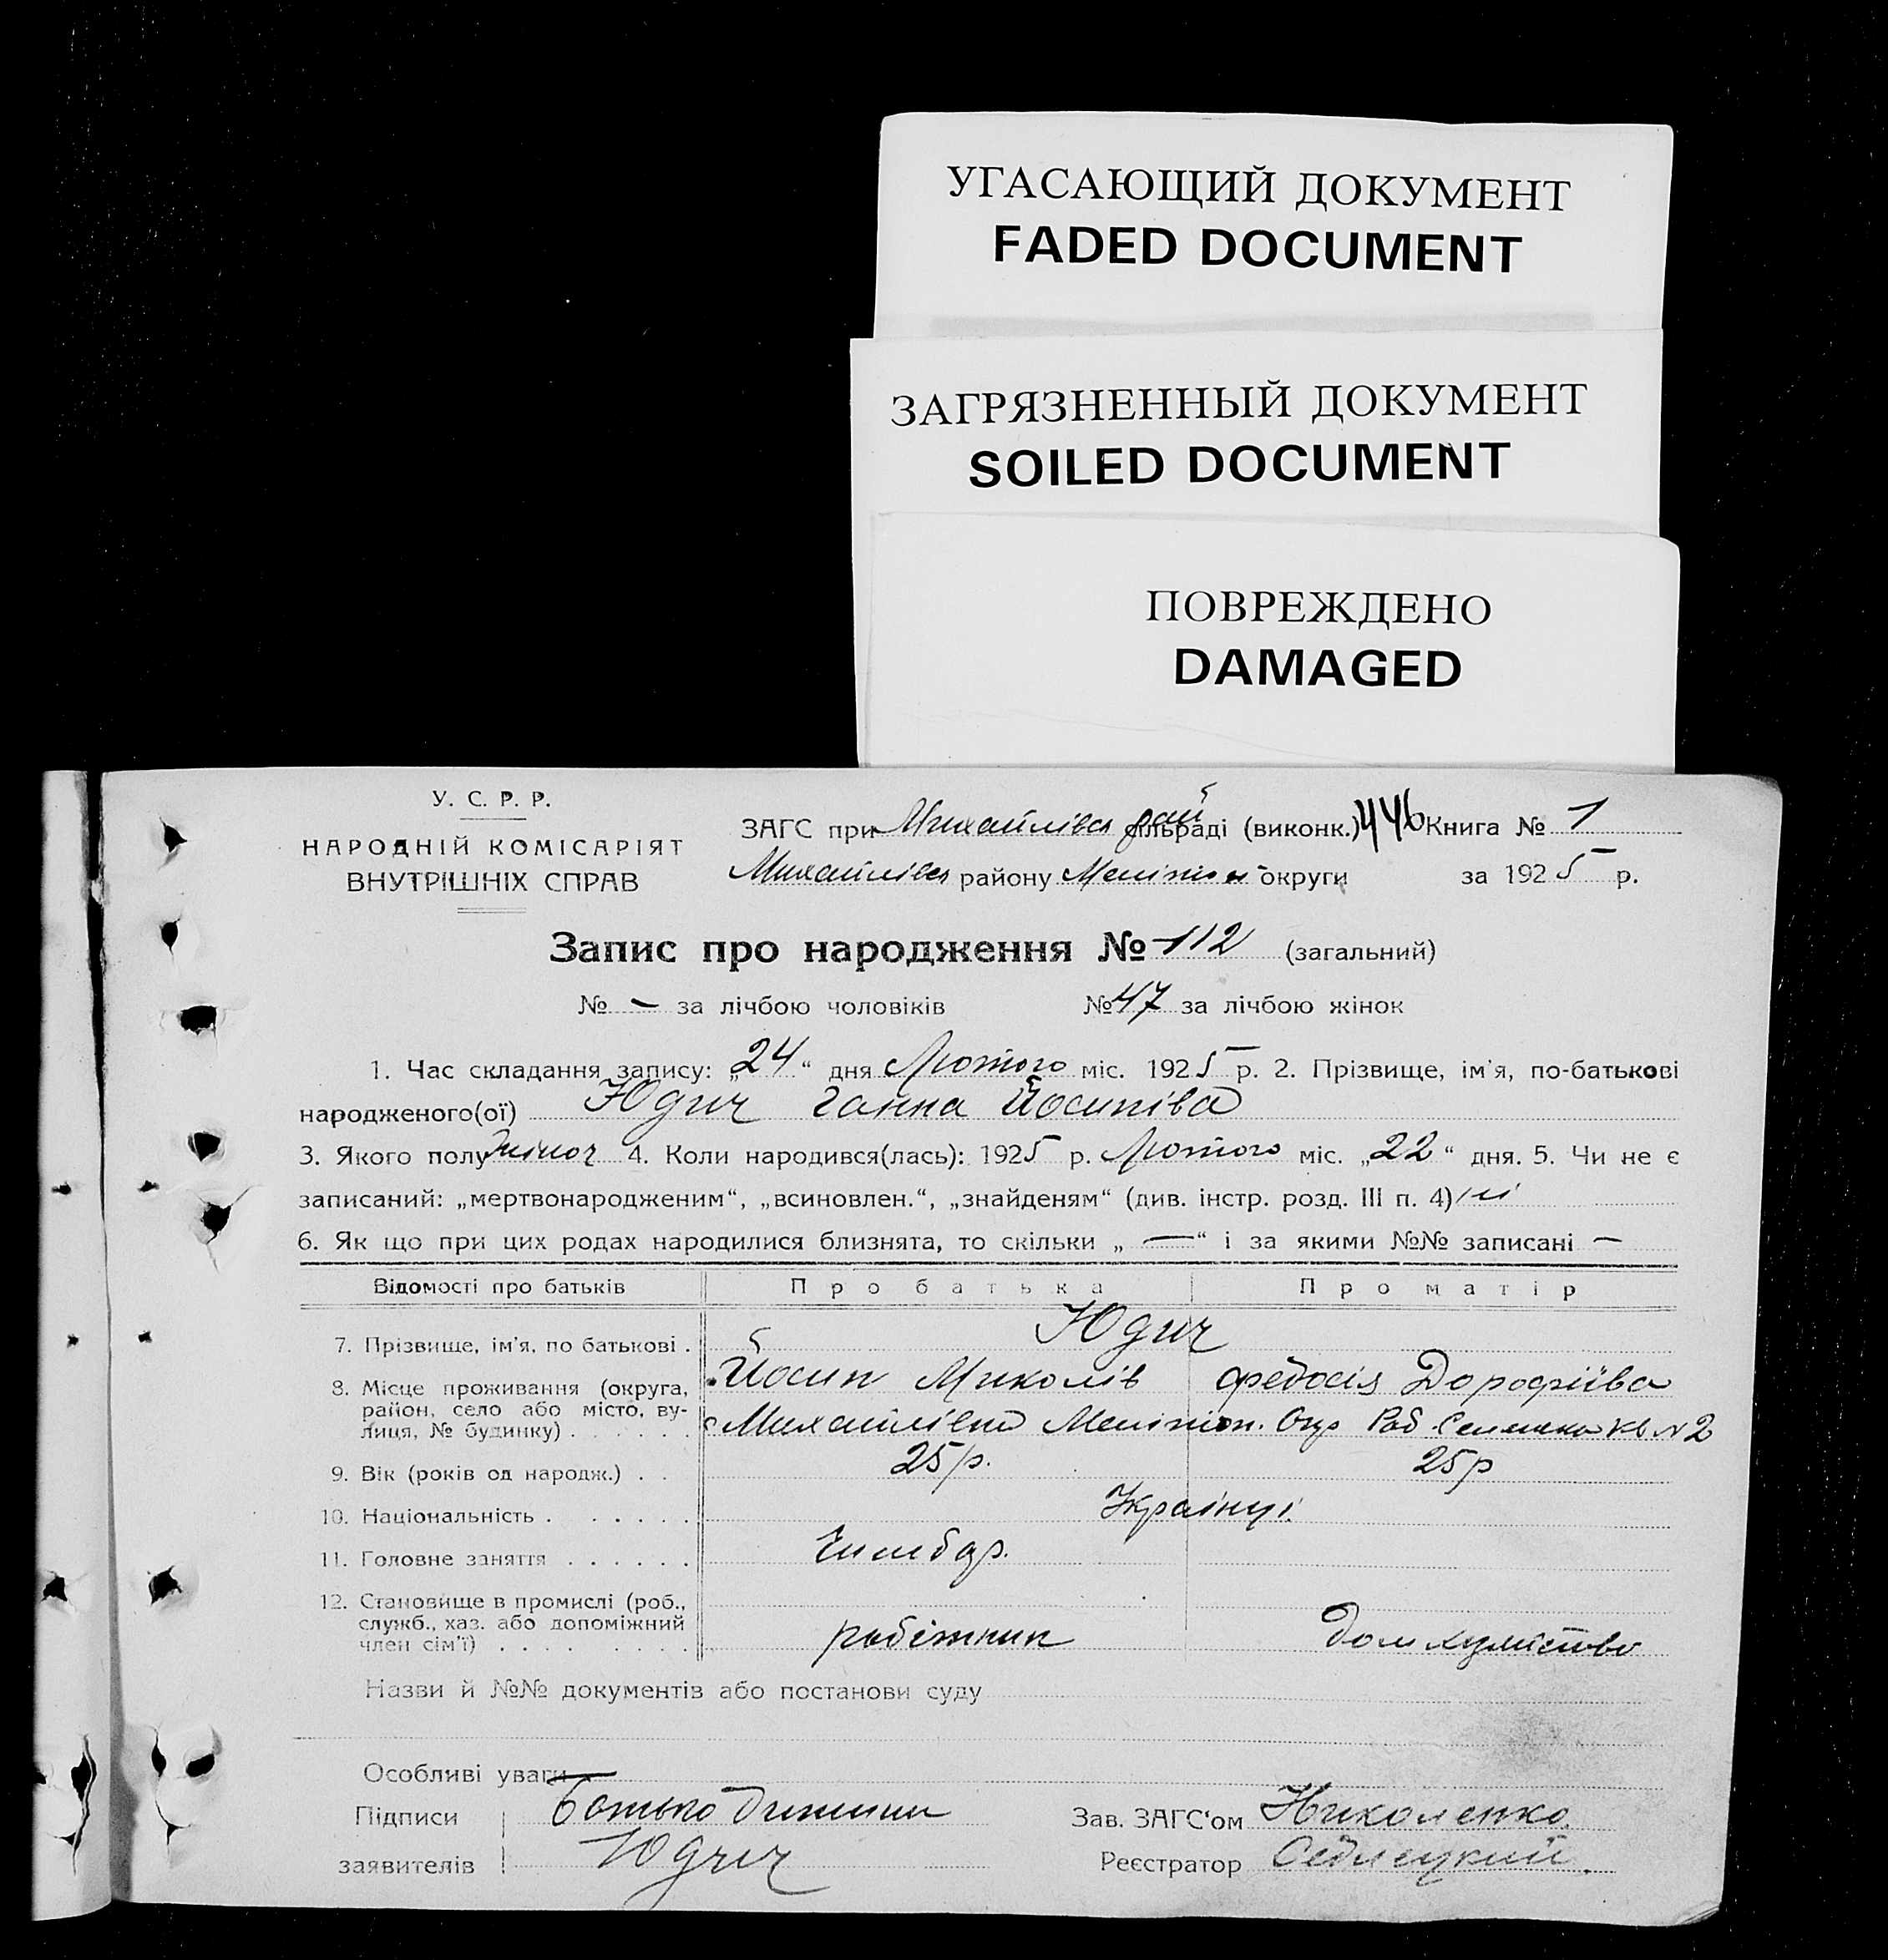 УГАСАЮЩИЙ ДОКУМЕНТ
FADED DOCUMENT
ЗАГРЯЗНЕННЫЙ ДОКУМЕНТ
SOILED DOCUMENT
ПОВРЕЖДЕНО
DAMAGED
У. С. Р. Р.
НАРОДНІЙ КОМІСАРІЯТ
ВНУТРІШНІХ СПРАВ
ЗАГС при Михайлівськ рай сільраді (виконк.) 446 Книга № 1
Михайлівськ району Мелітоп округи за 1925 р.
Запис про народження № 112 (загальний)
№ — за лічбою чоловіків № 47 за лічбою жінок
1. Час складання запису: „24“ дня Лютого міс. 1925 р. 2. Прізвище, ім'я, по-батькові
народженого(ої) Юдич Ганна Йосипівна
3. Якого полу жіноч 4. Коли народився(лась): 1925 р. Лютого міс. „22“ дня. 5. Чи не є
записаний: „мертвонародженим“, „всиновлен.“, „знайденям“ (див. інстр. розд. III п. 4) ні
6. Як що при цих родах народилися близнята, то скільки „ — “ і за якими №№ записані —
Відомості про батьків Про батька Про матір
7. Прізвище, ім'я, по батькові . Юдич
Йосип Миколів Федосія Дорофіїва
8. Місце проживання (округа, район, село або місто, вулиця, № будинку) . . . . . . с Михайлівка Мелітоп. Окр Роб. № 2
9. Вік (років од народж.) . . 25 р. 25 р
10. Національність . . . . . . Українці
11. Головне заняття . . . . . . Чимбар.
12. Становище в промислі (роб., служб., хаз. або допоміжний член сім'ї) . . . . . . . . робітник дом хазяйство
Назви й №№ документів або постанови суду
Особливі уваги
Підписи Батько дитини Зав. ЗАГС'ом Николенко.
заявителів Юдич Реєстратор Седлецкий.